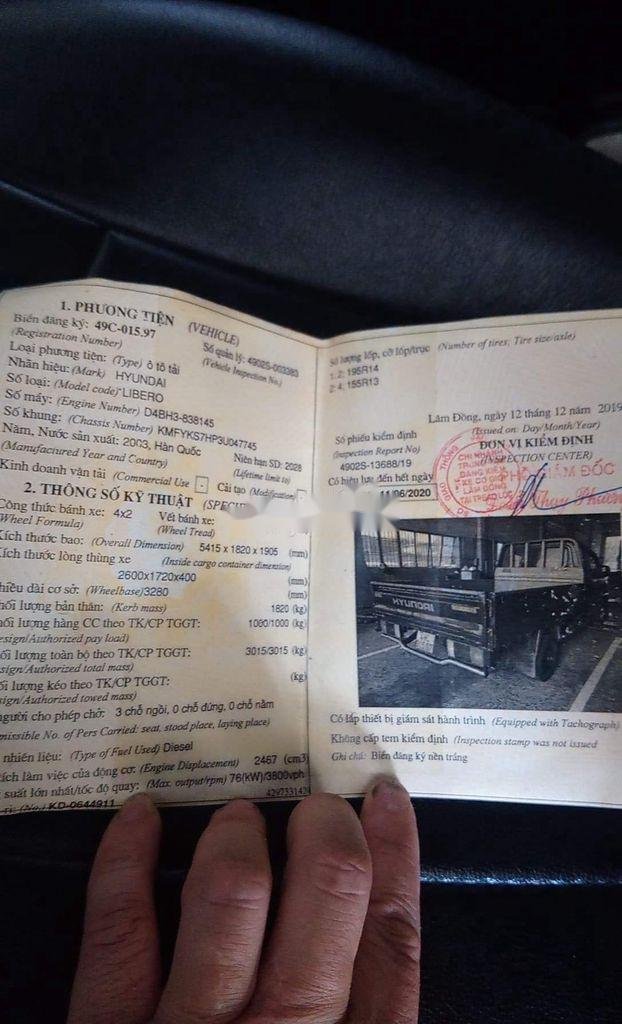 1. PHƯƠNG TIỆN (VEHICLE)
Biển đăng ký: 49C-015.97
(Registration Number)
Số quản lý: 4902S-003383
(Vehicle Inspection No.)
Loại phương tiện: (Type) ô tô tải
Nhãn hiệu: (Mark) HYUNDAI
Số loại: (Model code) LIBERO
Số máy: (Engine Number) D4BH3-838145
Số khung: (Chassis Number) KMFYKS7HP3U047745
Năm, Nước sản xuất: 2003, Hàn Quốc
(Manufactured Year and Country)
Niên hạn SD: 2028
(Lifetime limit to)
Kinh doanh vận tải (Commercial Use) -
Cải tạo (Modification) -
2. THÔNG SỐ KỸ THUẬT
Công thức bánh xe: 4x2
(Wheel Formula)
Vết bánh xe:
(Wheel Tread)
Kích thước bao: (Overall Dimension) 5415 x 1820 x 1905 (mm)
Kích thước lòng thùng xe (Inside cargo container dimension)
2600x1720x400 (mm)
hiều dài cơ sở: (Wheelbase) 3280 (mm)
hối lượng bản thân: (Kerb mass) 1820 (kg)
hối lượng hàng CC theo TK/CP TGGT: 1000/1000 (kg)
esign/Authorized pay load)
ối lượng toàn bộ theo TK/CP TGGT: 3015/3015 (kg)
sign/Authorized total mass)
ối lượng kéo theo TK/CP TGGT: (kg)
sign/Authorized towed mass)
người cho phép chở: 3 chỗ ngồi, 0 chỗ đứng, 0 chỗ nằm
missible No. of Pers Carried: seat, stood place, laying place)
nhiên liệu: (Type of Fuel Used) Diesel
ích làm việc của động cơ: (Engine Displacement) 2467 (cm3)
suất lớn nhất/tốc độ quay: (Max. output/rpm) 76(kW)/3800vph
429733142
(No.) KD-0644911
Số lượng lốp, cỡ lốp/trục (Number of tires; Tire size/axle)
1: 2; 195R14
2: 4; 155R13
Lâm Đồng, ngày 12 tháng 12 năm 2019
(Issued on: Day/Month/Year)
Số phiếu kiểm định
(Inspection Report No)
4902S-13688/19
ĐƠN VỊ KIỂM ĐỊNH
(INSPECTION CENTER)
Có hiệu lực đến hết ngày
11/06/2020
GIÁM ĐỐC
CHI NHÁNH
TRUNG TÂM
ĐĂNG KIỂM
XE CƠ GIỚI
LÂM ĐỒNG
HYUNDAI
Có lắp thiết bị giám sát hành trình (Equipped with Tachograph)
Không cấp tem kiểm định (Inspection stamp was not issued
Ghi chú: Biển đăng ký nền trắng